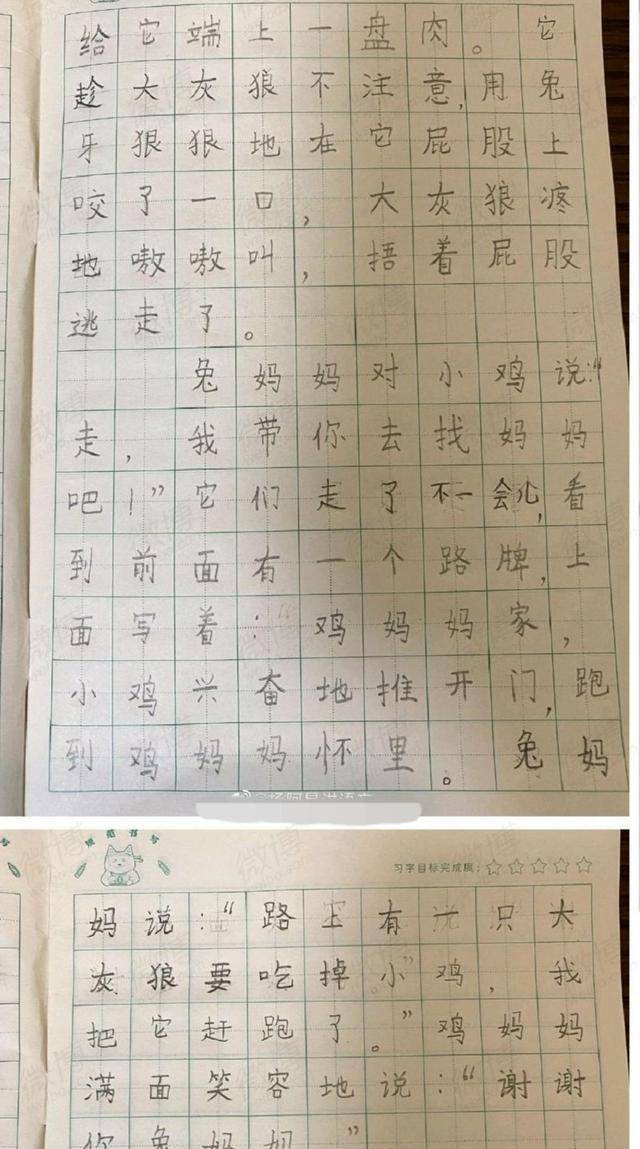 给它端上一盘肉。它
趁大灰狼不注意,用兔
牙狠狠地在它屁股上
咬了一口,大灰狼疼
地嗷嗷叫,捂着屁股
逃走了。
兔妈妈对小鸡说:“
走,我带你去找妈妈
吧!”它们走了不一会儿,看
到前面有一个路牌,上
面写着:“鸡妈妈家,
小鸡兴奋地推开门,跑
到鸡妈妈怀里。兔妈
规范书写
习字目标完成度:
妈说:“路上有一只大
灰狼要吃掉小鸡,我
把它赶跑了。”鸡妈妈
满面笑容地说:“谢谢
你兔妈妈”